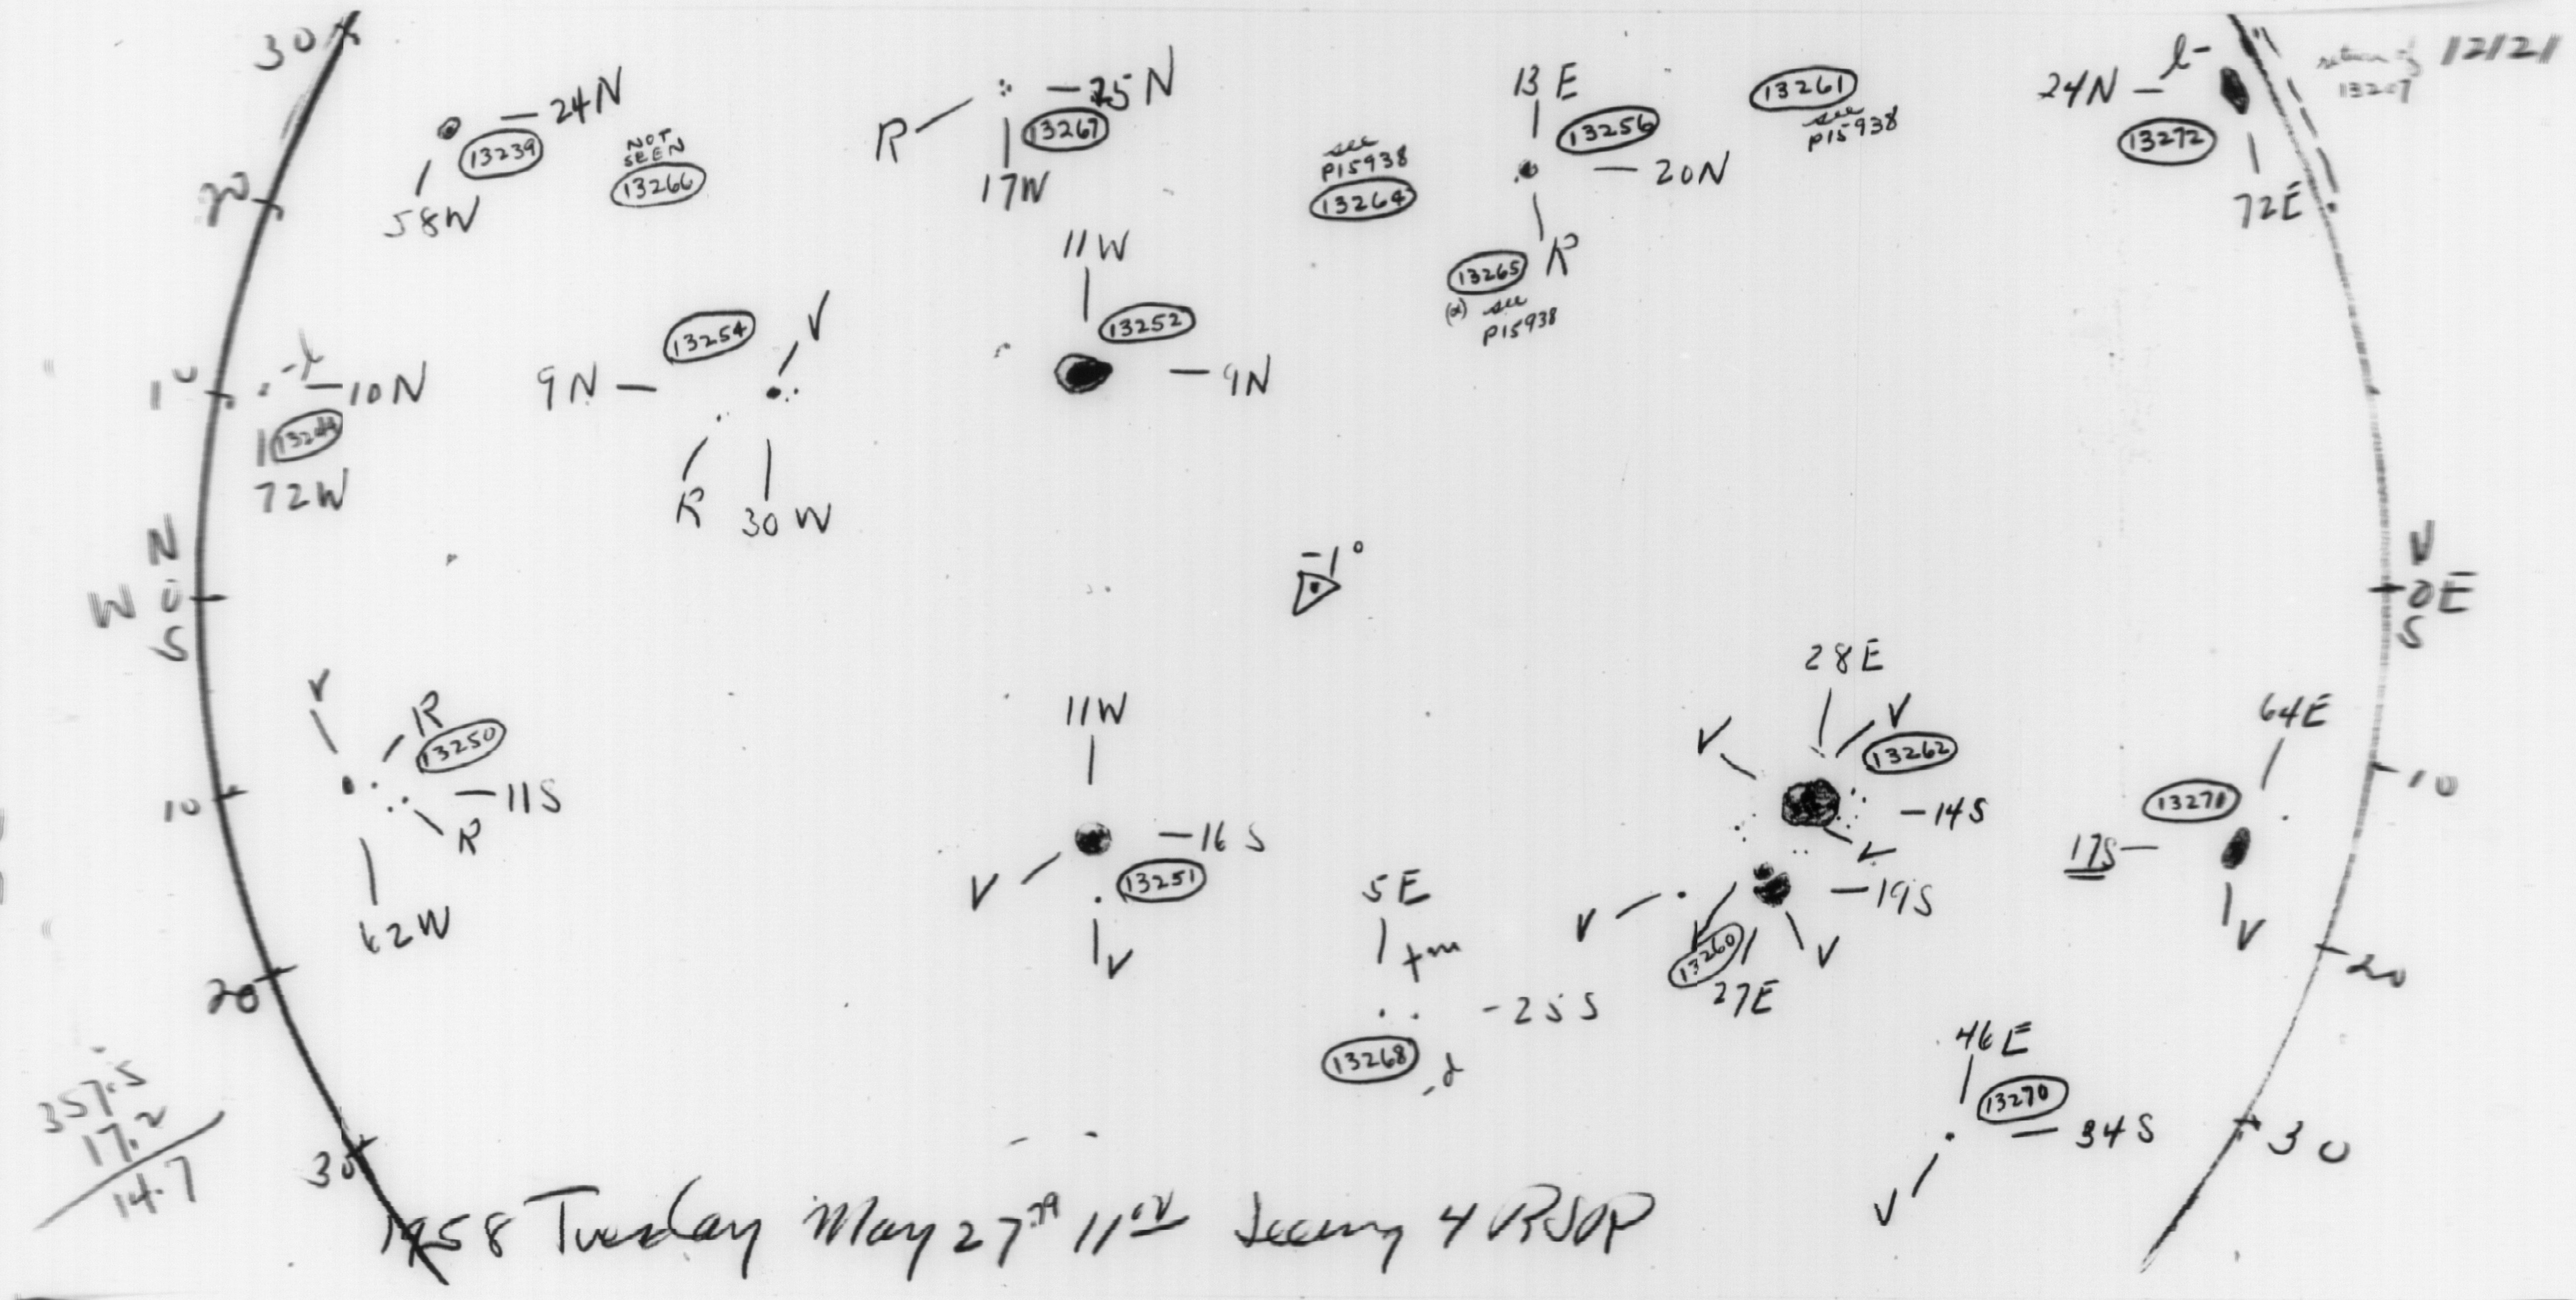 30
24N
13239
58W
NOT
SEEN
13266
R
25N
13267
17W
see
P15938
13264
13E
13256
20N
R
13265
(α) see
P15938
13261
see
P15938
24N
l-
13272
72E
return of
13207
12121
20
10
-l
10N
13244
72W
9N
13254
V
R
30W
11W
13252
9N
N
W 0
S
-1°
N
0 E
S
V
R
13250
11S
R
62W
10
11W
16S
13251
V
V
28E
V
V
13262
14S
V
64E
13271
17S
V
10
5E
+m
-25S
13268
d
19S
V
V
V
13260
27E
20
20
46E
13270
34S
V
30
30
357.5
17.2
14.7
1958 Tuesday May 27 11 Seeing 4